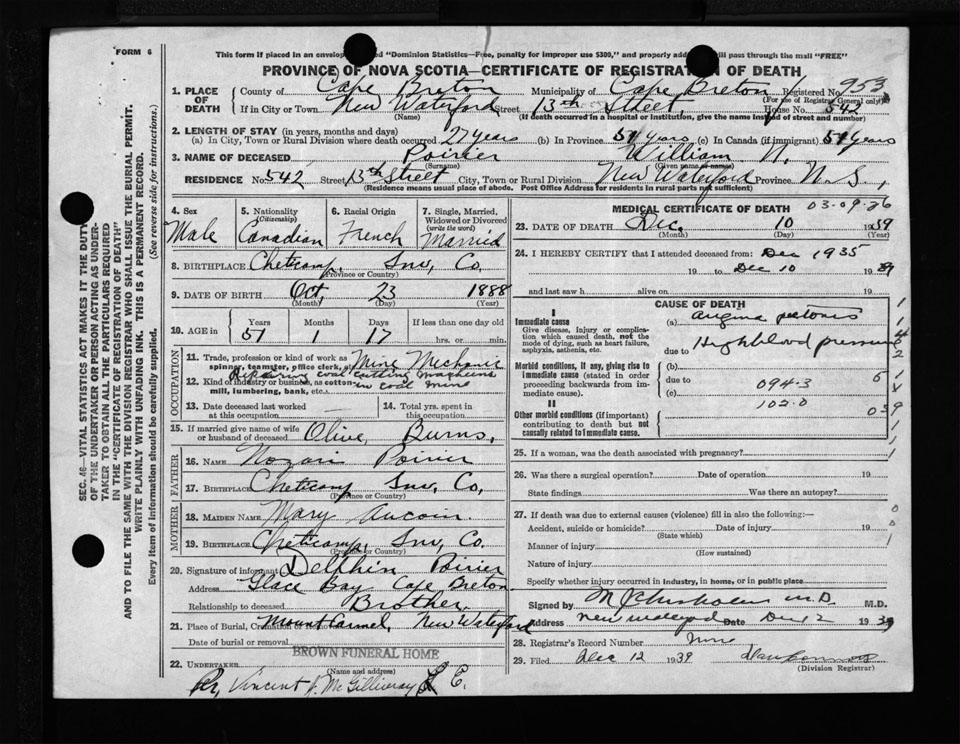 FORM 6
This form if placed in an envelop "Dominion Statistics—Free, penalty for improper use $300," and properly add will pass through the mail "FREE"
PROVINCE OF NOVA SCOTIA—CERTIFICATE OF REGISTRATION OF DEATH
1. PLACE OF DEATH
County of Cape Breton Municipality of Cape Breton Registered No. 953
(For use of Registrar General only)
If in City or Town New Waterford Street 13th Street House No. 542
(Name) (If death occurred in a hospital or institution, give the name instead of street and number)
2. LENGTH OF STAY (in years, months and days)
(a) In City, Town or Rural Division where death occurred 27 years (b) In Province 51 years (c) In Canada (if immigrant) 51 years
3. NAME OF DECEASED Poirier William N.
(Surname) (Given name or names)
RESIDENCE No. 542 Street 13th Street City, Town or Rural Division New Waterford Province N.S.,
(Residence means usual place of abode. Post Office Address for residents in rural parts not sufficient)
4. Sex Male
5. Nationality (Citizenship) Canadian
6. Racial Origin French
7. Single, Married, Widowed or Divorced (write the word) Married
8. BIRTHPLACE Cheticamp, Inv, Co.
(Province or Country)
9. DATE OF BIRTH Oct, 23 1888
(Month) (Day) (Year)
10. AGE in Years Months Days If less than one day old
51 1 17 hrs. or min.
OCCUPATION
11. Trade, profession or kind of work as spinner, teamster, office clerk, Mine Mechanic
Repairing coal cutting machines in coal mine
12. Kind of industry or business, as cotton mill, lumbering, bank, etc.
13. Date deceased last worked at this occupation —
14. Total yrs. spent in this occupation
15. If married give name of wife or husband of deceased Olive, Burns,
FATHER
16. NAME Poirier
17. BIRTHPLACE Cheticamp Inv, Co,
(Province or Country)
MOTHER
18. MAIDEN NAME Mary Aucoin.
19. BIRTHPLACE Cheticamp, Inv, Co.
(Province or Country)
20. Signature of informant Delphin Poirier
Address Glace Bay Cape Breton
Relationship to deceased Brother.
21. Place of Burial, Cremation or Mount Carmel, New Waterford
Date of burial or removal
BROWN FUNERAL HOME
22. UNDERTAKER
(Name and address)
Per Vincent J. McGillivray
MEDICAL CERTIFICATE OF DEATH 03-09-26
23. DATE OF DEATH Dec. 10 1939
(Month) (Day) (Year)
24. I HEREBY CERTIFY that I attended deceased from: Dec 1935
19 to Dec 10 19 39
and last saw h alive on 19
CAUSE OF DEATH
I
Immediate cause (a) angina pectoris
Give disease, injury or complication which caused death, not the mode of dying, such as heart failure, asphyxia, asthenia, etc.
due to High blood pressure
Morbid conditions, if any, giving rise to immediate cause (stated in order proceeding backwards from immediate cause).
(b)
due to 094.3
(c) 102.0
II
Other morbid conditions (if important) contributing to death but not causally related to immediate cause.
25. If a woman, was the death associated with pregnancy?
26. Was there a surgical operation? Date of operation 19
State findings Was there an autopsy?
27. If death was due to external causes (violence) fill in also the following:—
Accident, suicide or homicide? Date of injury 19
(State which)
Manner of injury
(How sustained)
Nature of injury
Specify whether injury occurred in industry, in home, or in public place
Signed by M J Chisholm M.D. M.D.
Address New Waterford Date Dec 12 1939
28. Registrar's Record Number
29. Filed Dec 12 1939
(Division Registrar)
SEC. 46—VITAL STATISTICS ACT MAKES IT THE DUTY
OF THE UNDERTAKER OR PERSON ACTING AS UNDER-
TAKER TO OBTAIN ALL THE PARTICULARS REQUIRED
IN THE "CERTIFICATE OF REGISTRATION OF DEATH"
AND TO FILE THE SAME WITH THE DIVISION REGISTRAR WHO SHALL ISSUE THE BURIAL PERMIT.
WRITE PLAINLY WITH UNFADING INK. THIS IS A PERMANENT RECORD.
Every item of information should be carefully supplied. (See reverse side for instructions.)